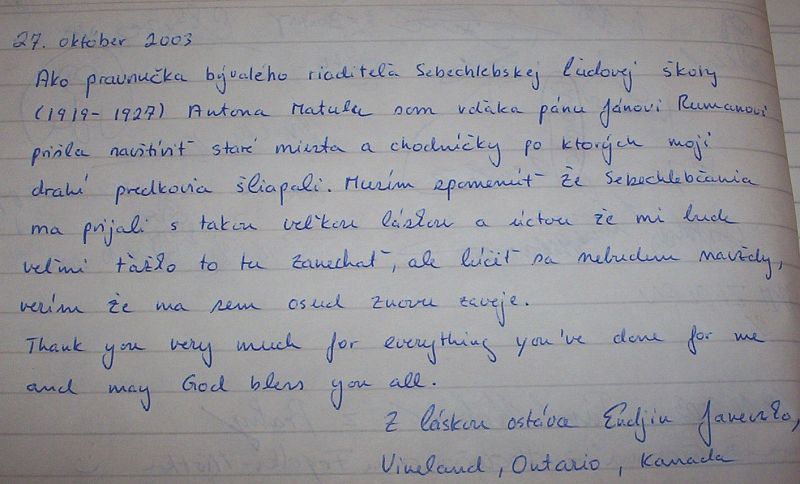 27. október 2003
Ako pravnučka bývalého riaditeľa Sebechlebskej ľudovej školy
(1919-1927) Antona Matulu som vďaka pánu Jánovi Rumanovi
prišla navštíviť staré miesta a chodníčky po ktorých moji
drahí predkovia šliapali. Musím spomenúť že Sebechlebčania
ma prijali s takou veľkou láskou a úctou že mi bude
veľmi ťažko to tu zanechať, ale lúčiť sa nebudem navždy,
verím že ma sem osud znovu zaveje.
Thank you very much for everything you've done for me
and may God bless you all.
Z láskou ostáva
Vineland, Ontario, Kanada